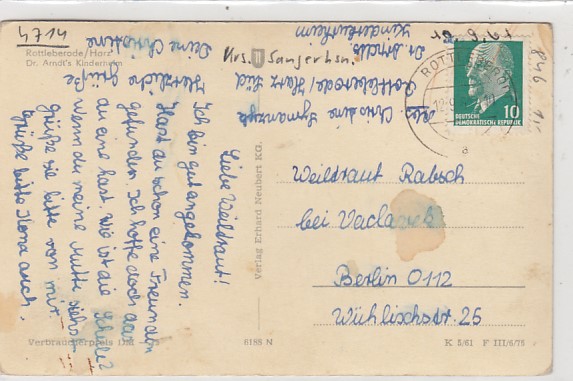 4714
Rottleberode/Harz
Dr. Arndt's Kinderheim
Krs. Sangerhsn.
Liebe Weiltraut!
Ich bin gut angekommen.
Hast du schon eine Freundin
gefunden. Ich hoffe doch das
du eine hast. Wie ist die Schule?
Wenn du meine Mutti siehst
Grüße sie bitte von mir.
Grüße bitte Ilona auch.
Herzliche Grüße
Deine Christine
Abs. Christine
Rottleberode/Harz Süd
Dr. Arndts
Kinderheim
ROTTLEBERODE
a
10
DEUTSCHE
DEMOKRATISCHE REPUBLIK
Verlag Erhard Neubert KG.
Weiltraut Rabsch
bei Vaclavek
Berlin 0112
Wühlischstr. 26
Verbraucherpreis DM
6188 N
K 5/61 F III/6/75